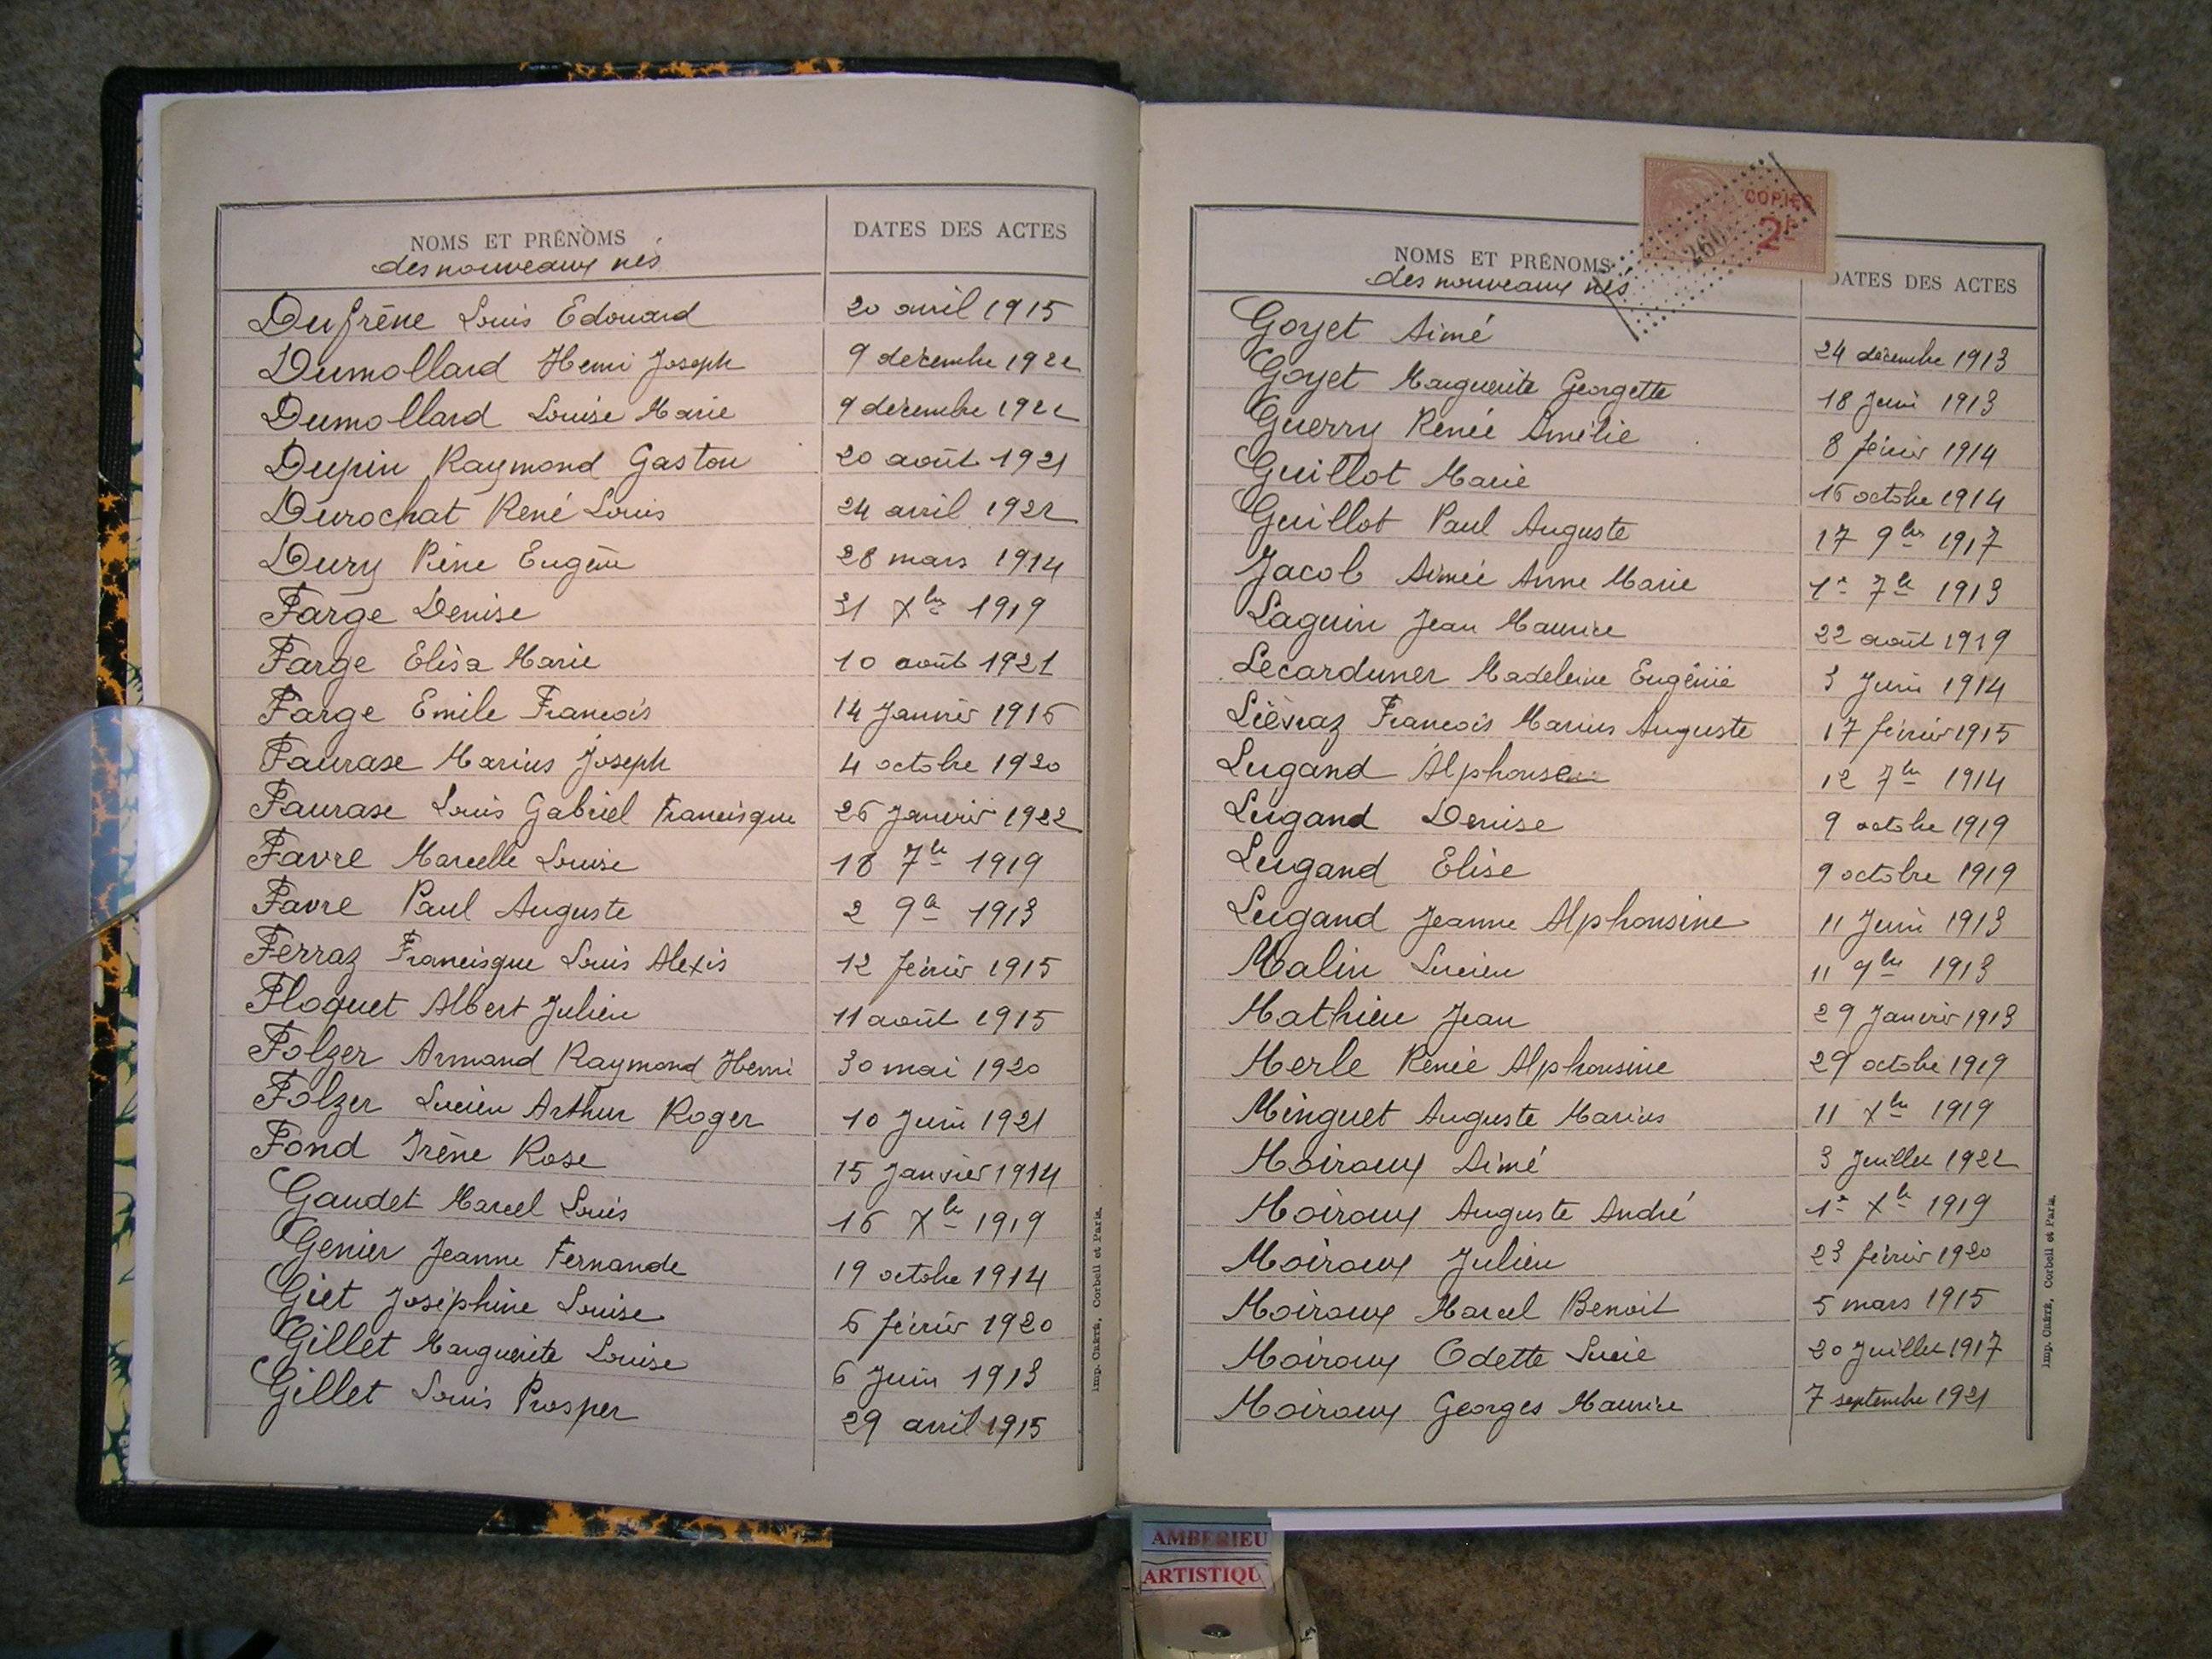 NOMS ET PRÉNOMS DATES DES ACTES
des nouveaux nés
Dufrêne Louis Edouard 20 avril 1915
Dumollard Henri Joseph 9 décembre 1922
Dumollard Louise Marie 9 décembre 1922
Dupin Raymond Gaston 20 août 1921
Durochat René Louis 24 avril 1922
Dury Eugène 28 mars 1914
Farge Denise 31 Xbre 1919
Farge Elisa Marie 10 août 1921
Farge Emile François 14 Janvier 1915
Faurase Marius Joseph 4 octobre 1920
Faurase Louis Gabriel Francisque 26 Janvier 1922
Favre Marcelle Louise 18 7bre 1919
Favre Paul Auguste 2 9bre 1913
Ferraz Francisque Louis Alexis 12 février 1915
Floquet Albert Julien 11 août 1915
Folzer Armand Raymond Henri 30 mai 1920
Folzer Lucien Arthur Roger 10 Juin 1921
Fond Irène Rose 15 Janvier 1914
Gaudet Marcel Louis 16 Xbre 1919
Genier Jeanne Fernande 19 octobre 1914
Giet Joséphine Louise 6 février 1920
Gillet Marguerite Louise 6 Juin 1913
Gillet Louis Prosper 29 avril 1915
Imp. CRÉTÉ, Corbeil et Paris.
COPIES
2F
NOMS ET PRÉNOMS DATES DES ACTES
des nouveaux nés
Goyet Aimé 24 décembre 1913
Goyet Marguerite Georgette 18 Juin 1913
Guerry Renée Amélie 8 février 1914
Guillot Marie 16 octobre 1914
Guillot Paul Auguste 17 9bre 1917
Jacob Aimée Anne Marie 1er 7bre 1913
Laguin Jean Maurice 22 août 1919
Lecarduner Madeleine Eugénie 3 Juin 1914
Lièvraz François Marius Auguste 17 février 1915
Lugand Alphonse 12 7bre 1914
Lugand Denise 9 octobre 1919
Lugand Elise 9 octobre 1919
Lugand Jeanne Alphonsine 11 Juin 1913
Malin Lucien 11 9bre 1913
Mathieu Jean 29 Janvier 1913
Merle Renée Alphonsine 29 octobre 1919
Minguet Auguste Marius 11 Xbre 1919
Moiroux Aimé 3 Juillet 1922
Moiroux Auguste André 1er Xbre 1919
Moiroux Julien 23 février 1920
Moiroux Marcel Benoit 5 mars 1915
Moiroux Odette Lucie 20 Juillet 1917
Moiroux Georges Maurice 7 septembre 1921
Imp. CRÉTÉ, Corbeil et Paris.
AMBERIEU
ARTISTIQU